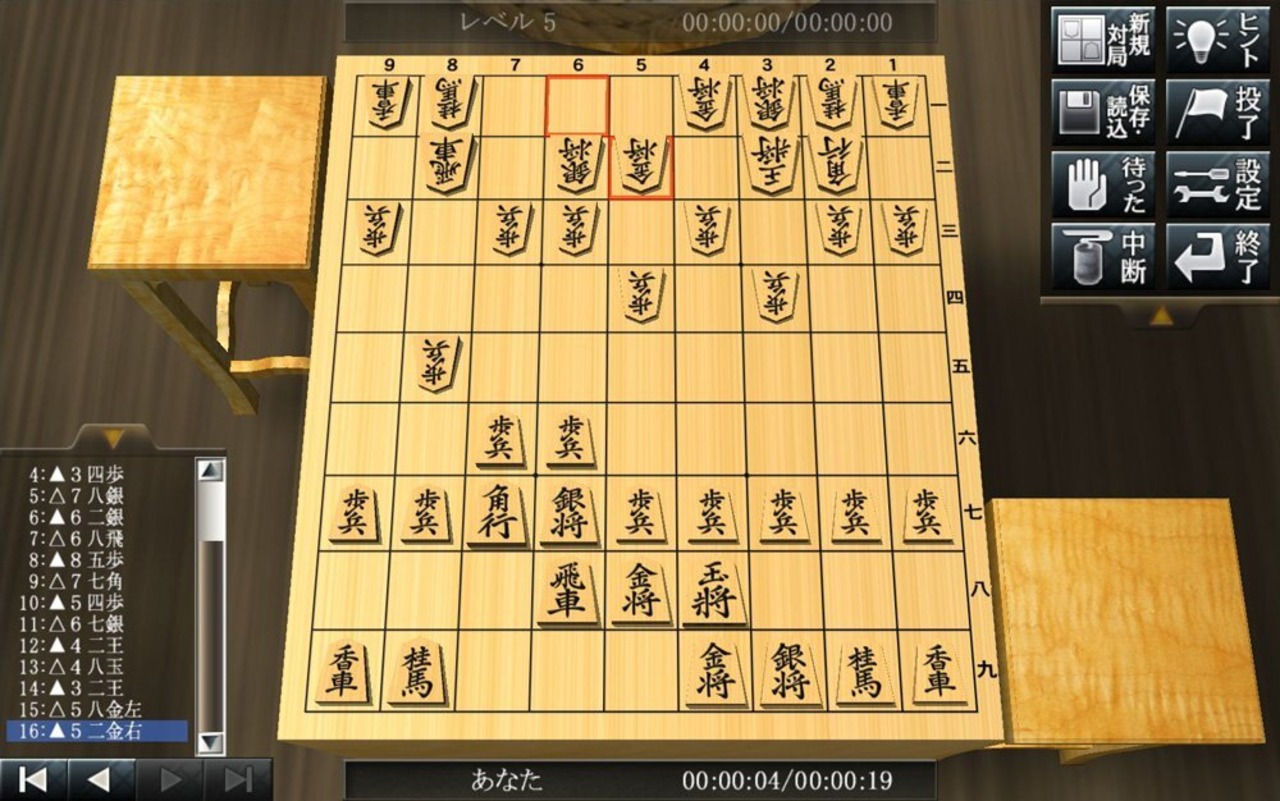 レベル 5 00:00:00/00:00:00
新規対局
ヒント
保存・読込
投了
待った
設定
中断
終了
9 8 7 6 5 4 3 2 1
一
二
三
四
五
六
七
八
九
香車 桂馬 金将 銀将 桂馬 香車
飛車 銀将 金将 王将 角行
歩兵 歩兵 歩兵 歩兵 歩兵 歩兵
歩兵 歩兵
歩兵
歩兵 歩兵
歩兵 歩兵 角行 銀将 歩兵 歩兵 歩兵 歩兵 歩兵
飛車 金将 玉将
香車 桂馬 金将 銀将 桂馬 香車
4:▲3四歩
5:△7八銀
6:▲6二銀
7:△6八飛
8:▲8五歩
9:△7七角
10:▲5四歩
11:△6七銀
12:▲4二王
13:△4八玉
14:▲3二王
15:△5八金左
16:▲5二金右
あなた 00:00:04/00:00:19